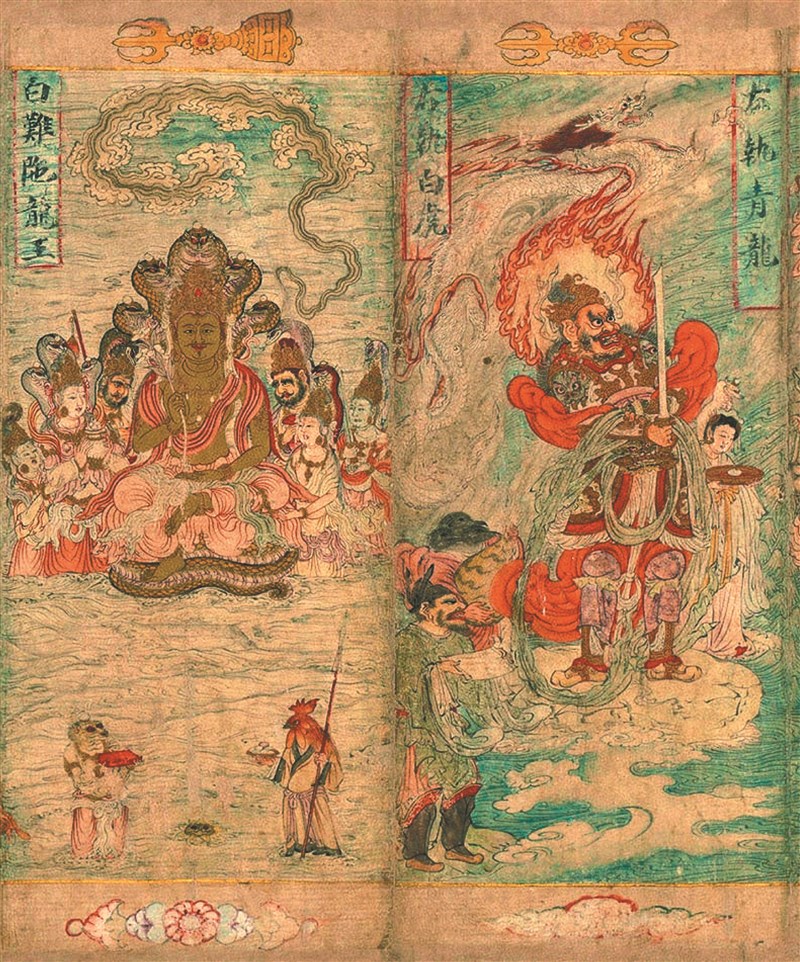 左執青龍
右執白虎
白難陁龍王